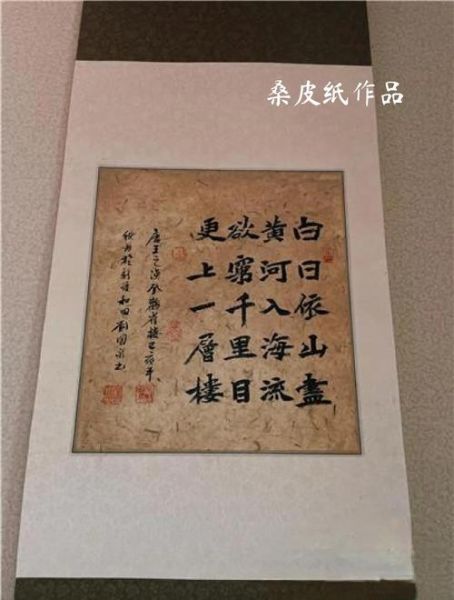 桑皮纸作品
白日依山盡
黄河入海流
欲窮千里目
更上一層樓
唐王之渙登鸛雀樓
和田